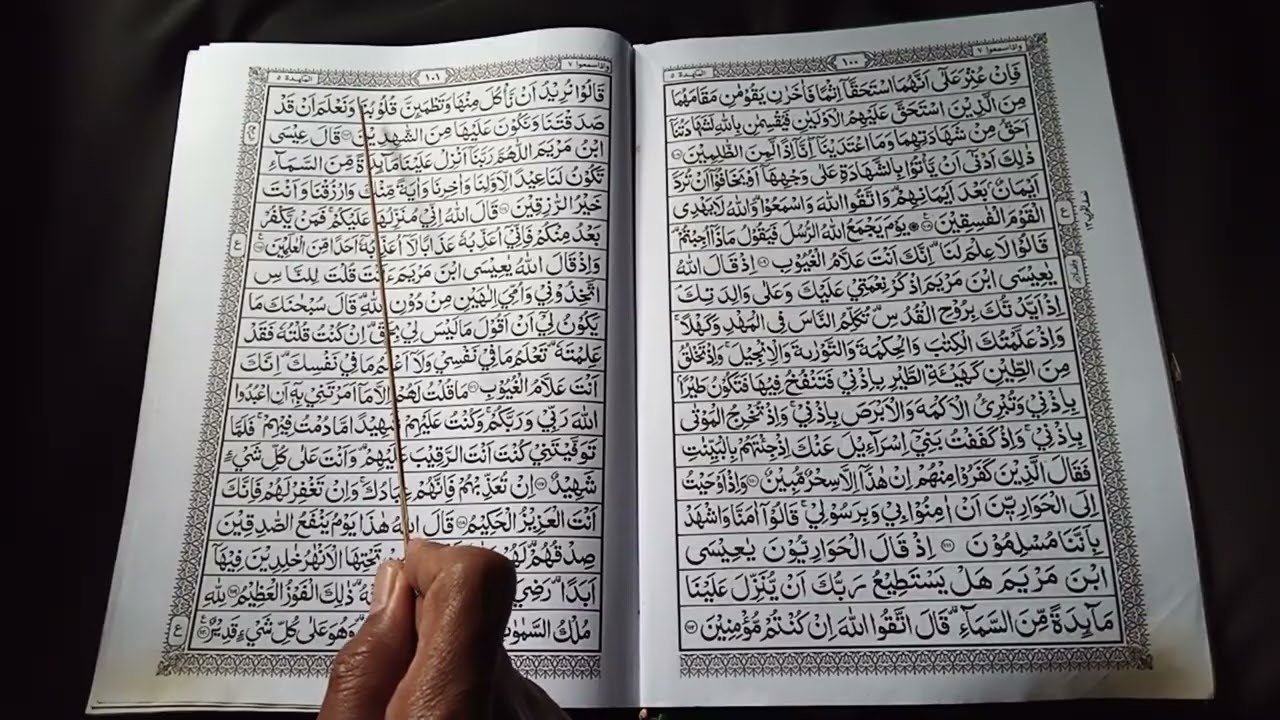 واذاسمعوا ٧
١٠٠
المآىدة ٥
فَاِنْ عُثِرَ عَلٰٓى اَنَّهُمَا اسْتَحَقَّآ اِثْمًا فَاٰخَرٰنِ يَقُوْمٰنِ مَقَامَهُمَا
مِنَ الَّذِيْنَ اسْتَحَقَّ عَلَيْهِمُ الْاَوْلَيٰنِ فَيُقْسِمٰنِ بِاللّٰهِ لَشَهَادَتُنَآ
اَحَقُّ مِنْ شَهَادَتِهِمَا وَمَا اعْتَدَيْنَآ اِنَّآ اِذًا لَّمِنَ الظّٰلِمِيْنَ ١٠٧
ذٰلِكَ اَدْنٰٓى اَنْ يَّأْتُوْا بِالشَّهَادَةِ عَلٰى وَجْهِهَآ اَوْ يَخَافُوْٓا اَنْ تُرَدَّ
اَيْمَانٌۢ بَعْدَ اَيْمَانِهِمْ ۗ وَاتَّقُوا اللّٰهَ وَاسْمَعُوْا ۗ وَاللّٰهُ لَا يَهْدِى
الْقَوْمَ الْفٰسِقِيْنَ ١٠٨ ۞ يَوْمَ يَجْمَعُ اللّٰهُ الرُّسُلَ فَيَقُوْلُ مَاذَآ اُجِبْتُمْ ۗ
قَالُوْا لَا عِلْمَ لَنَا ۗ اِنَّكَ اَنْتَ عَلَّامُ الْغُيُوْبِ ١٠٩ اِذْ قَالَ اللّٰهُ
يٰعِيْسَى ابْنَ مَرْيَمَ اذْكُرْ نِعْمَتِيْ عَلَيْكَ وَعَلٰى وَالِدَتِكَ ۘ
اِذْ اَيَّدْتُّكَ بِرُوْحِ الْقُدُسِ ۗ تُكَلِّمُ النَّاسَ فِى الْمَهْدِ وَكَهْلًا ۚ
وَاِذْ عَلَّمْتُكَ الْكِتٰبَ وَالْحِكْمَةَ وَالتَّوْرٰىةَ وَالْاِنْجِيْلَ ۚ وَاِذْ تَخْلُقُ
مِنَ الطِّيْنِ كَهَيْـَٔةِ الطَّيْرِ بِاِذْنِيْ فَتَنْفُخُ فِيْهَا فَتَكُوْنُ طَيْرًاۢ
بِاِذْنِيْ وَتُبْرِئُ الْاَكْمَهَ وَالْاَبْرَصَ بِاِذْنِيْ ۚ وَاِذْ تُخْرِجُ الْمَوْتٰى
بِاِذْنِيْ ۚ وَاِذْ كَفَفْتُ بَنِيْٓ اِسْرَآءِيْلَ عَنْكَ اِذْ جِئْتَهُمْ بِالْبَيِّنٰتِ
فَقَالَ الَّذِيْنَ كَفَرُوْا مِنْهُمْ اِنْ هٰذَآ اِلَّا سِحْرٌ مُّبِيْنٌ ١١٠ وَاِذْ اَوْحَيْتُ
اِلَى الْحَوَارِيّٖنَ اَنْ اٰمِنُوْا بِيْ وَبِرَسُوْلِيْ ۚ قَالُوْٓا اٰمَنَّا وَاشْهَدْ
بِاَنَّنَا مُسْلِمُوْنَ ١١١ اِذْ قَالَ الْحَوَارِيُّوْنَ يٰعِيْسَى
ابْنَ مَرْيَمَ هَلْ يَسْتَطِيْعُ رَبُّكَ اَنْ يُّنَزِّلَ عَلَيْنَا
مَآىِٕدَةً مِّنَ السَّمَآءِ ۗ قَالَ اتَّقُوا اللّٰهَ اِنْ كُنْتُمْ مُّؤْمِنِيْنَ ١١٢
واذاسمعوا ٧
١٠١
المآىدة ٥
قَالُوْا نُرِيْدُ اَنْ نَّأْكُلَ مِنْهَا وَتَطْمَىِٕنَّ قُلُوْبُنَا وَنَعْلَمَ اَنْ قَدْ
صَدَقْتَنَا وَنَكُوْنَ عَلَيْهَا مِنَ الشّٰهِدِيْنَ ١١٣ قَالَ عِيْسَى
ابْنُ مَرْيَمَ اللّٰهُمَّ رَبَّنَآ اَنْزِلْ عَلَيْنَا مَآىِٕدَةً مِّنَ السَّمَآءِ
تَكُوْنُ لَنَا عِيْدًا لِّاَوَّلِنَا وَاٰخِرِنَا وَاٰيَةً مِّنْكَ وَارْزُقْنَا وَاَنْتَ
خَيْرُ الرّٰزِقِيْنَ ١١٤ قَالَ اللّٰهُ اِنِّيْ مُنَزِّلُهَا عَلَيْكُمْ ۚ فَمَنْ يَّكْفُرْ
بَعْدُ مِنْكُمْ فَاِنِّيْٓ اُعَذِّبُهٗ عَذَابًا لَّآ اُعَذِّبُهٗٓ اَحَدًا مِّنَ الْعٰلَمِيْنَ ١١٥
وَاِذْ قَالَ اللّٰهُ يٰعِيْسَى ابْنَ مَرْيَمَ ءَاَنْتَ قُلْتَ لِلنَّاسِ
اتَّخِذُوْنِيْ وَاُمِّيَ اِلٰهَيْنِ مِنْ دُوْنِ اللّٰهِ ۗ قَالَ سُبْحٰنَكَ مَا
يَكُوْنُ لِيْٓ اَنْ اَقُوْلَ مَا لَيْسَ لِيْ بِحَقٍّ ۗ اِنْ كُنْتُ قُلْتُهٗ فَقَدْ
عَلِمْتَهٗ ۗ تَعْلَمُ مَا فِيْ نَفْسِيْ وَلَآ اَعْلَمُ مَا فِيْ نَفْسِكَ ۗ اِنَّكَ
اَنْتَ عَلَّامُ الْغُيُوْبِ ١١٦ مَا قُلْتُ لَهُمْ اِلَّا مَآ اَمَرْتَنِيْ بِهٖٓ اَنِ اعْبُدُوا
اللّٰهَ رَبِّيْ وَرَبَّكُمْ ۚ وَكُنْتُ عَلَيْهِمْ شَهِيْدًا مَّا دُمْتُ فِيْهِمْ ۚ فَلَمَّا
تَوَفَّيْتَنِيْ كُنْتَ اَنْتَ الرَّقِيْبَ عَلَيْهِمْ ۗ وَاَنْتَ عَلٰى كُلِّ شَيْءٍ
شَهِيْدٌ ١١٧ اِنْ تُعَذِّبْهُمْ فَاِنَّهُمْ عِبَادُكَ ۚ وَاِنْ تَغْفِرْ لَهُمْ فَاِنَّكَ
اَنْتَ الْعَزِيْزُ الْحَكِيْمُ ١١٨ قَالَ اللّٰهُ هٰذَا يَوْمُ يَنْفَعُ الصّٰدِقِيْنَ
صِدْقُهُمْ ۗ لَهُمْ تَحْتِهَا الْاَنْهٰرُ خٰلِدِيْنَ فِيْهَآ
اَبَدًا ۗ رَضِيَ ذٰلِكَ الْفَوْزُ الْعَظِيْمُ ١١٩ لِلّٰهِ
مُلْكُ السَّمٰوٰتِ وَهُوَ عَلٰى كُلِّ شَيْءٍ قَدِيْرٌ ١٢٠